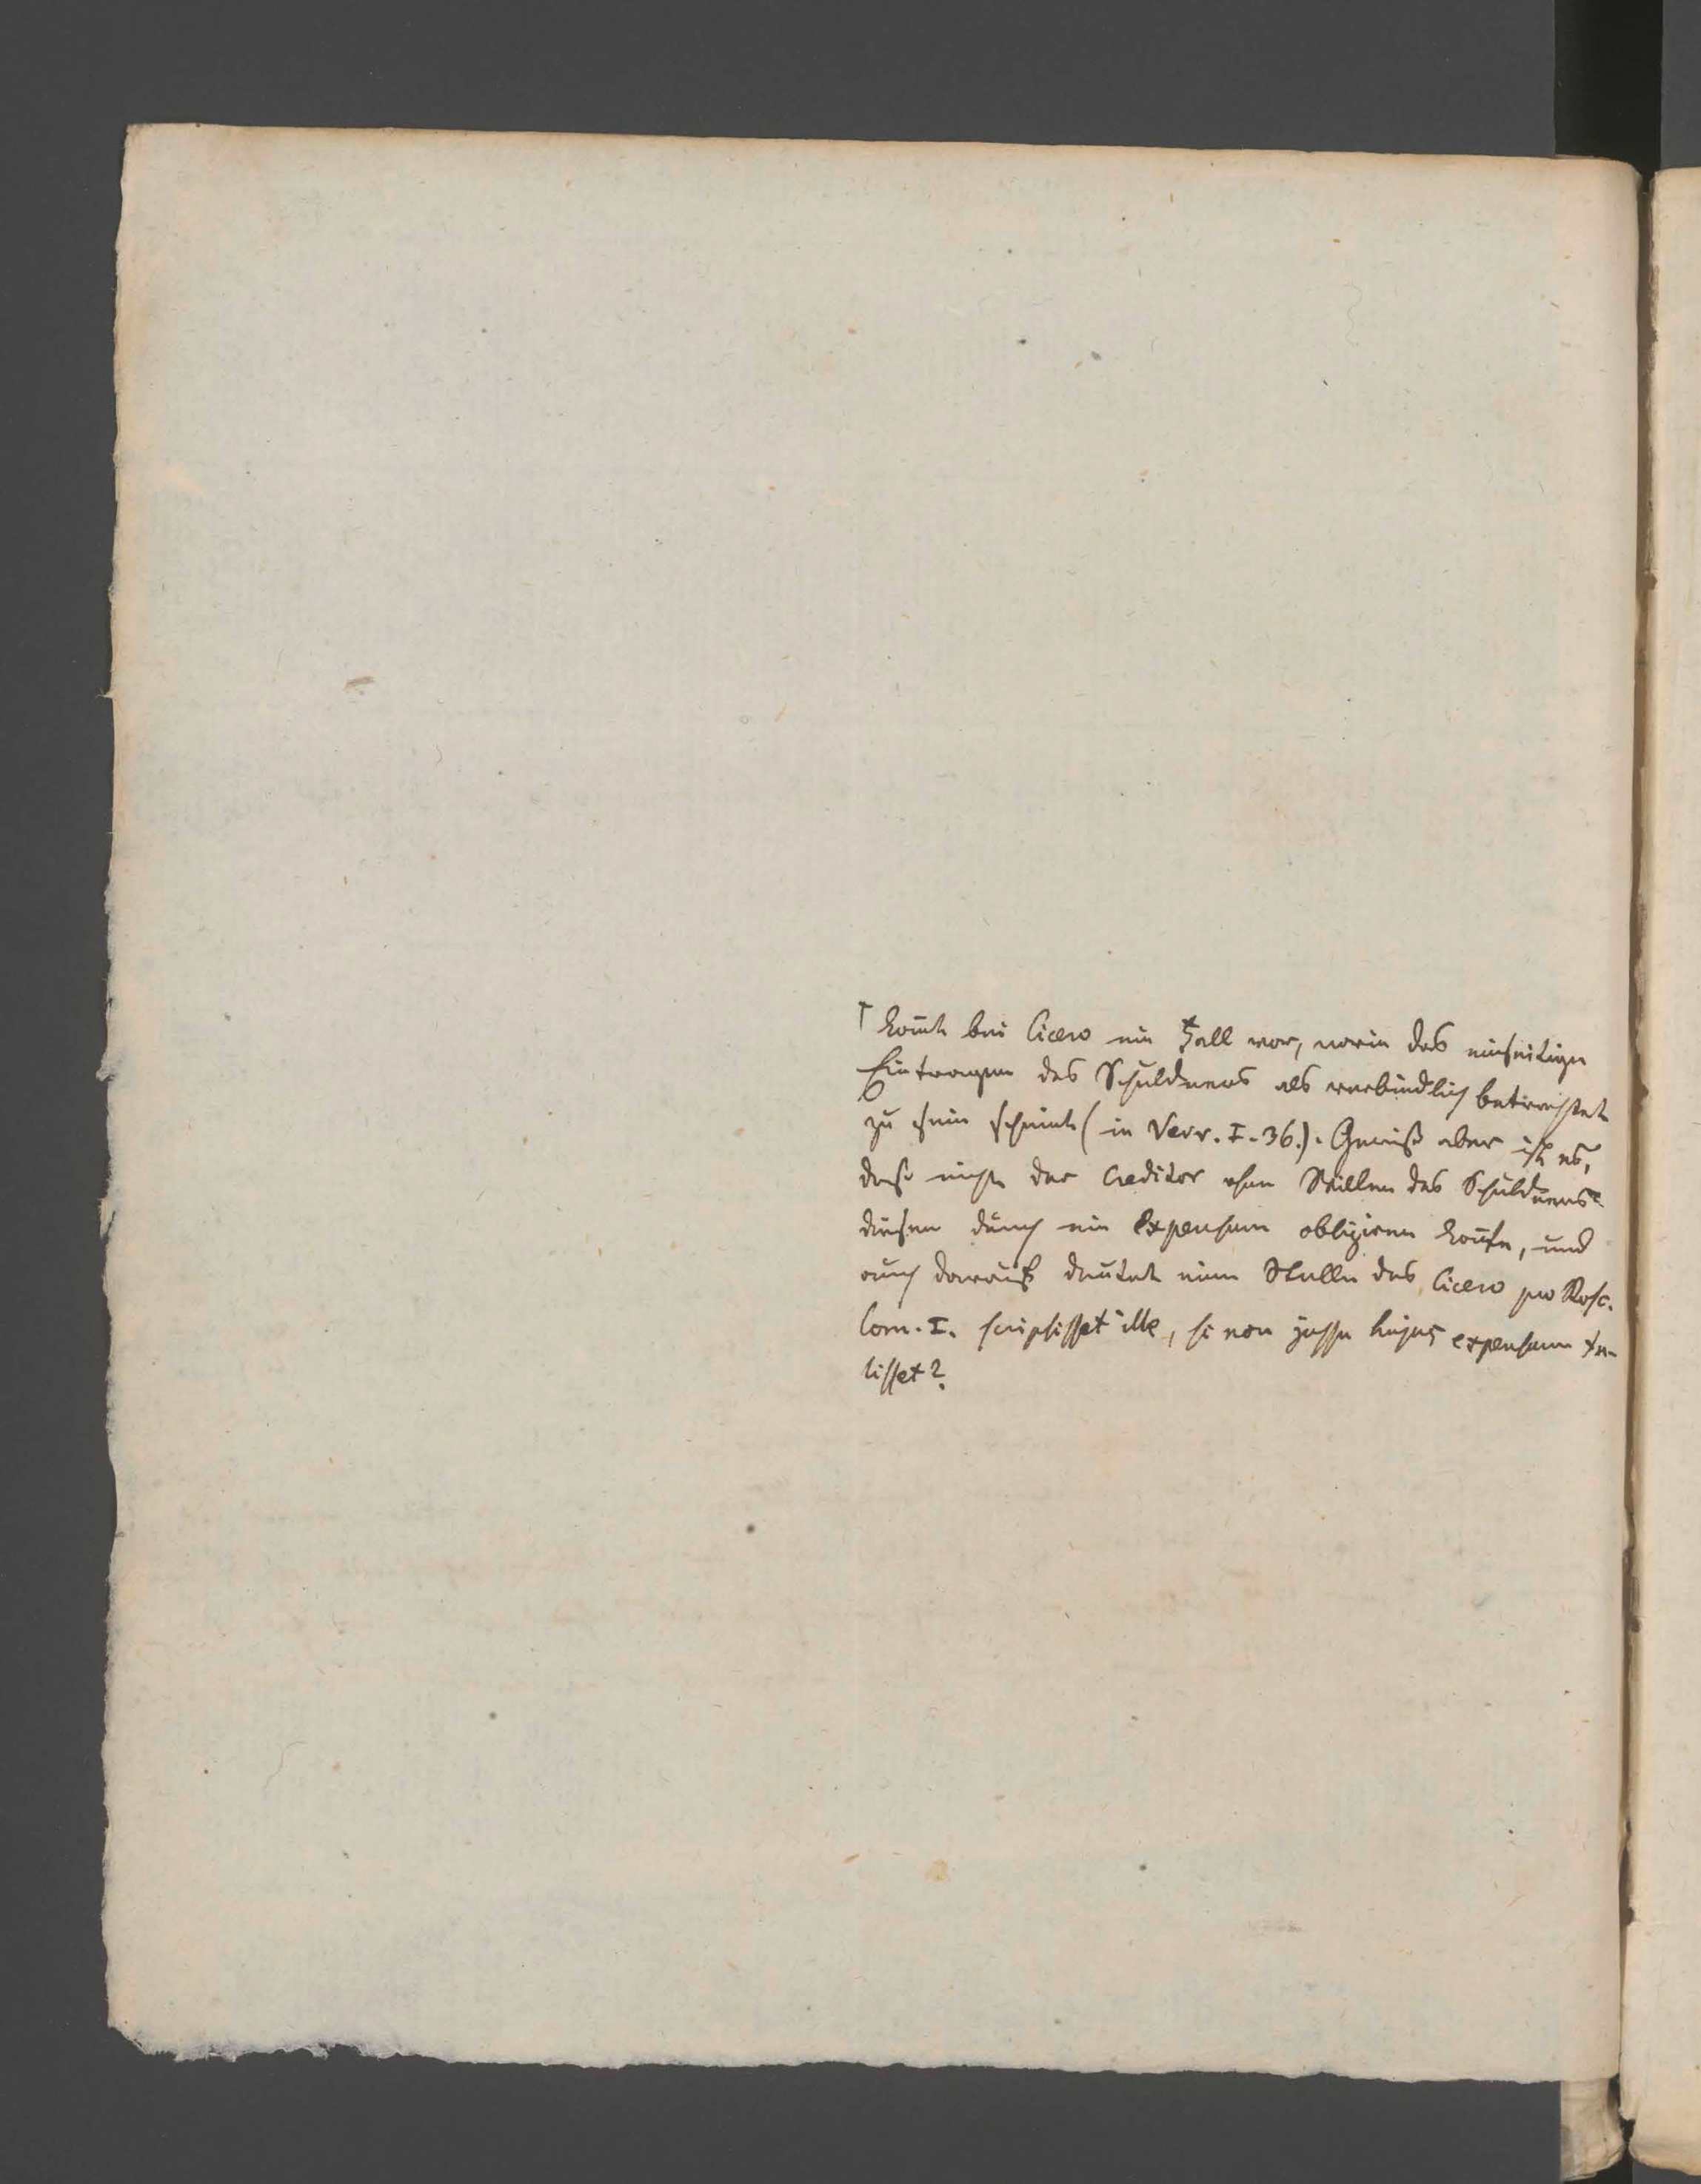 † kom̅t bei Cicero ein Fall vor, worin das einseitige
Eintragen des Schuldners als verbindlich betrachtet
zu sein scheint (in Verr. I. 36.). Gewiß aber ist es,
daß nicht der Creditor ohne Willen des Schuldners
diesen durch ein Expensum obligiren kon̅te, und
auch darauf deutet eine Stelle des Cicero pro Rosc.
Com. I. scripsisset ille, si non jussu hujus expensum tu-
lisset?